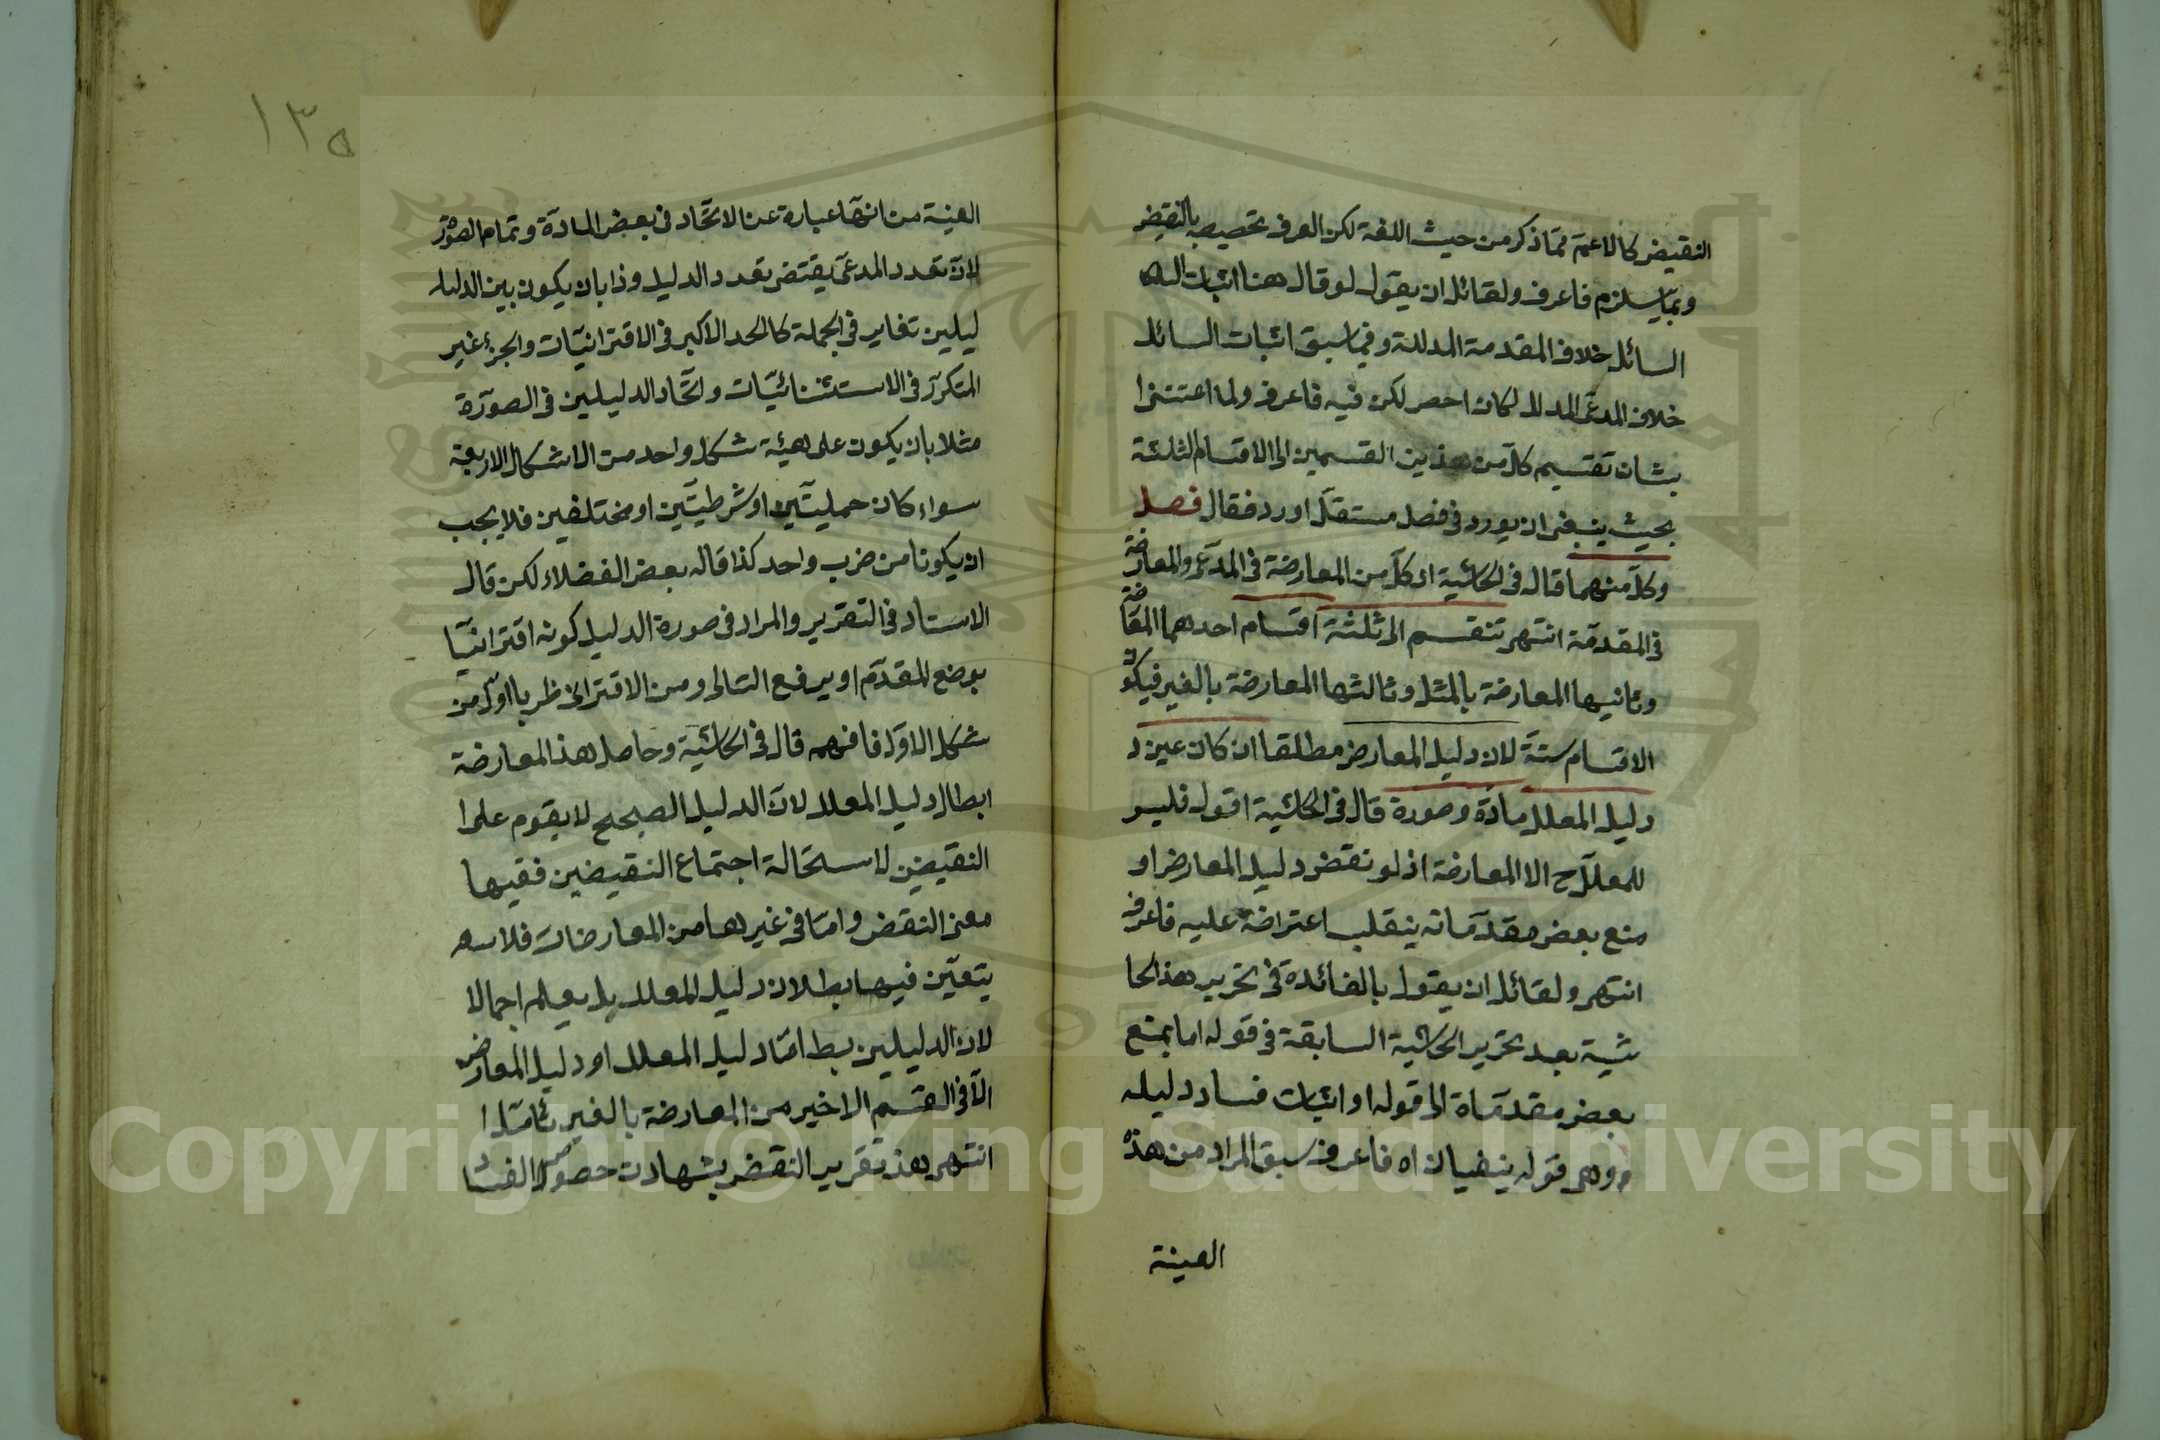 النقيض كالاعم مما ذكر من حيث اللغة لكن العرف تخصيصه بالنقيض
وبما يستلزم فاعرف ولقائل ان يقول لو قال هنا اثبات
السائل خلاف المقدمة المدللة وفيما سبق اثبات السائل
خلاف المدعى المدلل لكان احصر لكن فيه فاعرف ولما اعتنى
بشان تقسيم كل من هذين القسمين الى الاقسام الثلثة
بحيث ينبغى ان يورد فى فصل مستقل اورد فقال فصل
وكل منهما قال فى الحاشية اى كل من المعارضة فى المدعى والمعارضة
فى المقدمة انتهى تنقسم الى ثلثة اقسام احدهما
وثانيها المعارضة بالمثل وثالثها المعارضة بالغير فيكون
الاقسام ستة لان دليل المعارض مطلقا ان كان عين
دليل المعلل مادة وصورة قال فى الحاشية اقول فليس
للمعلل ح الا المعارضة اذ لو نقض دليل المعارض او
منع بعض مقدماته ينقلب اعتراضه عليه فاعرف
انتهى ولقائل ان يقول بالفائدة فى تحرير هذ الحا
شية بعد تحرير الحاشية السابقة فى قوله اما بمنع
بعض مقدماة الى قوله او اثبات فساد دليله
وهى قوله ينفيان اه فاعرف سبق المراد من هذه
العينة
١٣٥
العينة من انها عبارة عن الاتحاد فى بعض المادة وتمام الصورة
لان تعدد المدعى يقتضى تعدد الدليل وذا بان يكون بين الدليل
ليلين تغاير فى الجملة كالحد الاكبر فى الاقترانيات والجزء غير
المتكرر فى الاستثنائيات واتحاد الدليلين فى الصورة
مثلا بان يكون على هيئة شكل واحد من الاشكال الاربعة
سواء كان حمليتين او شرطيتين او مختلفين فلا يجب
ان يكونا من ضرب واحد كذا قاله بعض الفضلاء لكن قال
الاستاد فى التقرير والمراد فى صورة الدليل كونه اقترانيا
بوضع المقدم او يرفع التالى ومن الاقترانى ظربا اول من
شكل الاول فافهم قال فى الحاشية وحاصل هذ المعارضة
ابطال دليل المعلل لان الدليل الصحيح لا يقوم على
النقيضين لاستحالة اجتماع النقيضين ففيها
معنى النقض واما فى غيرها من المعارضات فلا
يتعين فيها بطلان دليل المعلل بل يعلم اجمالا
لان الدليلين بط اما دليل المعلل او دليل المعارض
الا فى القسم الاخير من المعارضة بالغير تأمل
انتهى هذ تقرير النقض بشهادت حصول الفساد